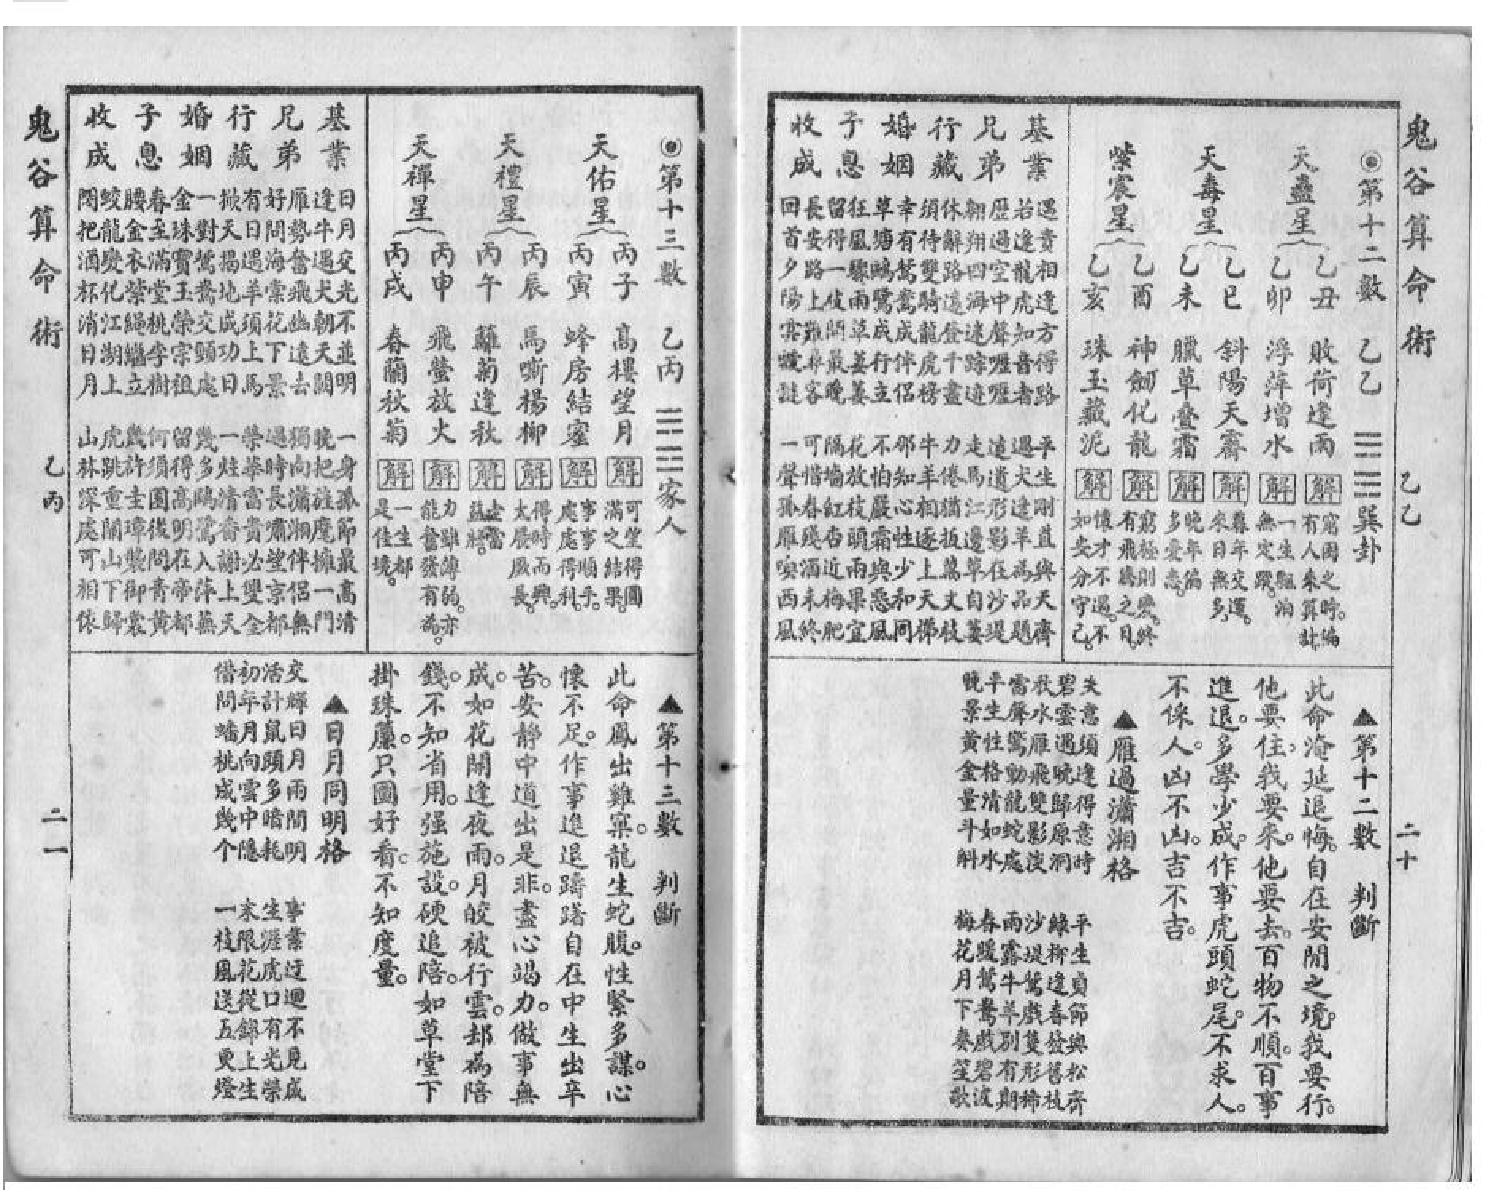 鬼谷算命術
乙乙
二十
◉第十二數 乙乙 ䷸巽卦
天蠱星
乙丑 敗荷逢雨 解 窮困之時。有人來算計。
乙卯 浮萍增水 解 一生飄泊無定蹤。
天毒星
乙巳 斜陽天霽 解 暮年交運。來日無多。
乙未 臘草疊霜 解 晚年偏多憂患。
紫宸星
乙酉 神劍化龍 解 窮極則變。終有飛騰之日。
乙亥 珠玉藏泥 解 懷才不遇。不如安分守己。
基業 遇貴相逢方得路 平生剛直與天齊
若逢龍虎知音者 遇犬逢羊為品題
兄弟 歷過空中聲嚦嚦 遺遺形影在沙堤
翱翔四海迷踪迹 走馬江邊草自萋
行藏 休辭路遠登千盡 力倦猶扳萬丈枝
須待雙騎龍虎榜 牛羊相逐上天梯
婚姻 幸有鴛鴦成伴侶 那知心性少和同
草塘鷗鷺成行立 不怕嚴霜與惡風
子息 狂風驟雨草萋萋 花放枝頭雨果宜
留得一枝開最晚 隔墻紅杏近梅肥
收成 長安路上難尋客 可惜春殘酒未終
回首夕陽雲靉靆 一聲孤雁唳西風
▲第十二數 判斷
此命淹延追悔。自在安閒之境。我要行。
他要住。我要來。他要去。百物不順。百事
進退。多學少成。作事虎頭蛇尾。不求人。
不保人。凶不凶。吉不吉。
▲雁過瀟湘格
失意須逢得意時 平生貞節與松齊
碧雲遇晚歸原洞 綠柳逢春發舊枝
秋水雁飛雙影渡 沙堤鴛戲隻形棲
雷聲驚動龍蛇處 雨露牛羊別有期
平生性格清如水 春暖鴛鴦戲碧波
曉景黃金量斗斛 梅花月下奏笙歌
◉第十三數 乙丙 ䷤家人
天佑星
丙子 高樓望月 解 可望得圓滿之結果。
丙寅 蜂房結蜜 解 事事順乎。處處得利。
天禮星
丙辰 馬嘶楊柳 解 得時而興。大展厥長。
丙午 籬菊逢秋 解
天禪星
丙申 飛螢放火 解 力雖薄弱。亦能奮發有為。
丙戌 春蘭秋菊 解 一生都是佳境。
基業 日月交光不並明 一身孤節最高清
逢牛遇犬朝天闕 晚把旌麾擁一門
兄弟 雁勢奮飛幽遠去 獨向瀟湘伴侶無
好問海棠花下景 過時長嘯望京都
行藏 有日遇羊須上馬 榮華富貴必雙全
掀天揭地成功日 一炷清香謝上天
婚姻 一對鴛鴦交頸處 幾多鷗鷺入萍蕪
金珠寶玉榮宗祖 留得高明在帝都
子息 春至滿堂桃李樹 何須圃後問青黃
腰金衣紫繩繩立 幾許圭璋襲御裳
收成 蛟龍變化江湖上 虎跳重關山下歸
閒把酒杯消日月 山林深處可相依
▲第十三數 判斷
此命鳳出雞窠。龍生蛇腹。性緊多謀。心
懷不足。作事進退躊躇。自在中生出辛
苦。安靜中道出是非。盡心竭力。做事無
成。如花開逢夜雨。月皎被行雲。却為陪
錢。不知省用。强施設。硬追陪。如草堂下
掛珠簾。只圖好看。不知度量。
▲日月同明格
交輝日月兩間明 事業迂迴不見成
活計鼠頭多暗耗 生涯虎口有光榮
初年月向雲中隱 末限花從錦上生
借問蟠桃成幾个 一枝風送五更燈
鬼谷算命術
乙丙
二一